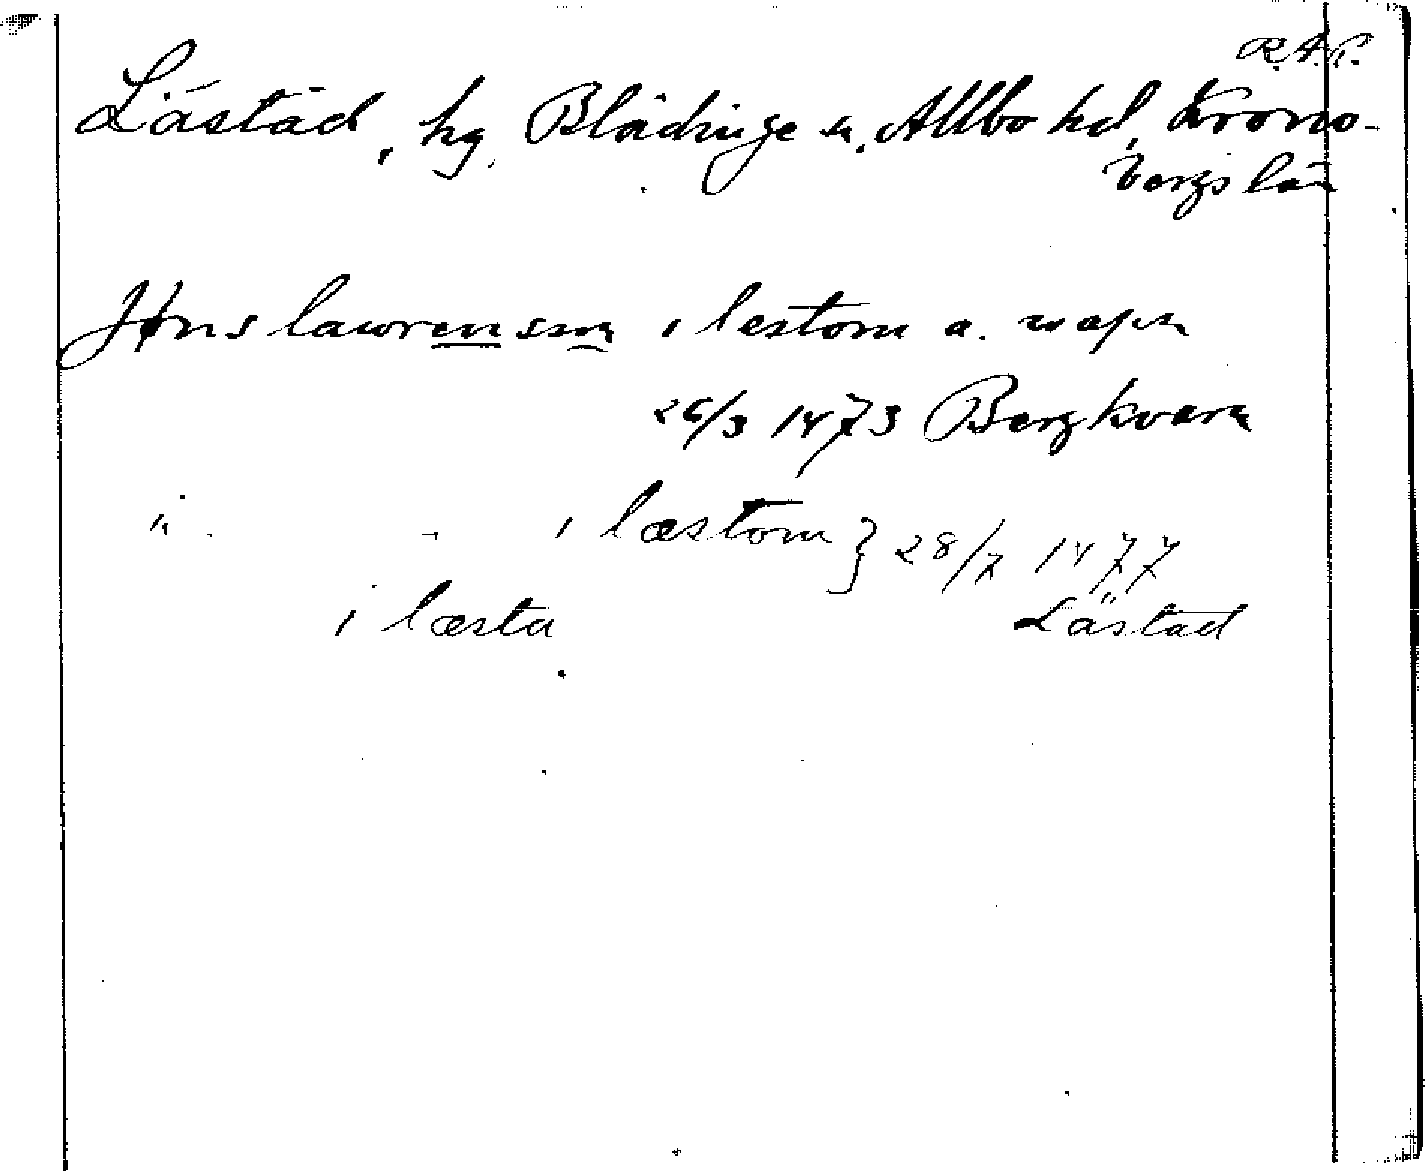 R.A.P.
Lästad, hg, Blädinge sn, Allbo hd, Krono-
bergs län
Jøns lawrensson i lestom a. wapn
26/3 1473 Bergkvara
" - i læstom } 28/7 1477
i læsta Lästad